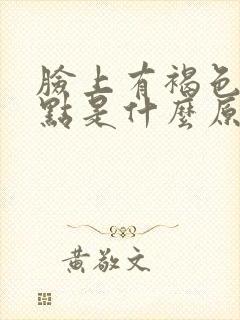 臉上有褐色
點是什麼原
黃敬文